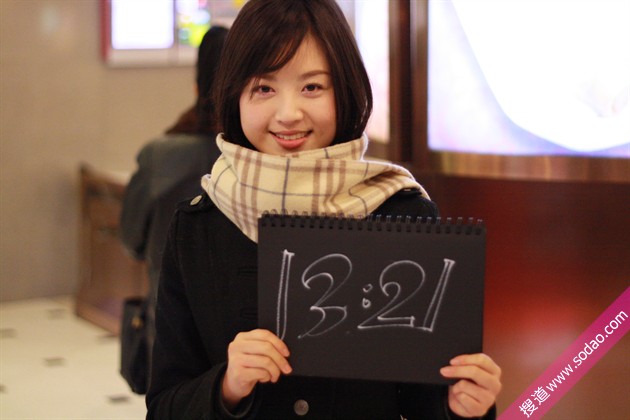 13:21
搜道www.sodao.com